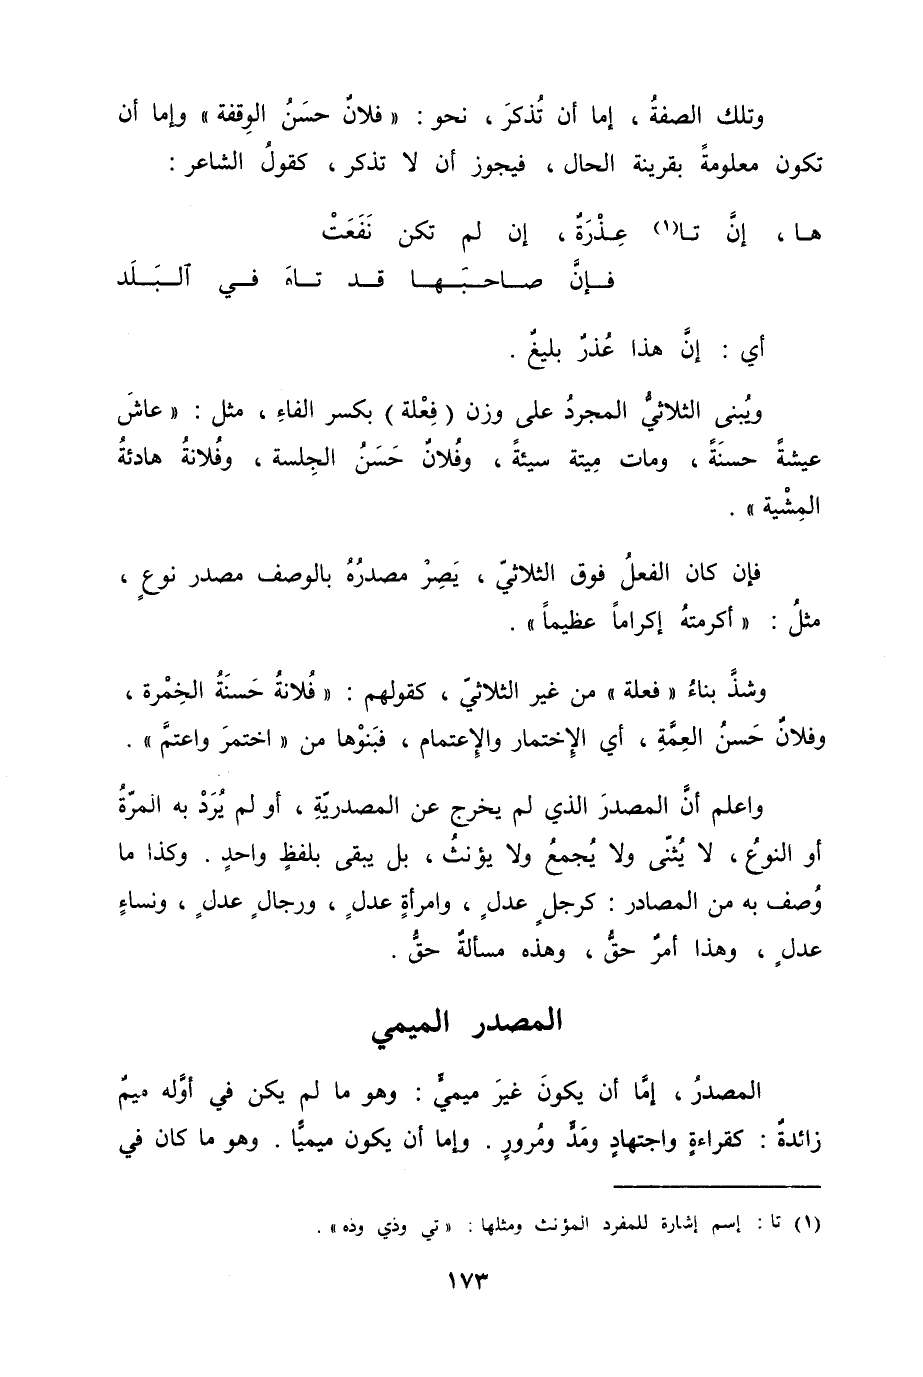 وتلك الصفةُ ، إما أن تُذكرَ ، نحو : « فلانٌ حسَنُ الوِقفة » وإما أن
تكون معلومةً بقرينة الحال ، فيجوز أن لا تذكر ، كقولُ الشاعر :
هـا ، إنَّ تـا(١) عِـذْرَةٌ ، إن لم تكن نَفَعَتْ
فـإنَّ صـاحـبَـهـا قـد تـاهَ فـي ٱلـبَـلَد
أي : إنَّ هذا عُذرٌ بليغٌ .
ويُبنى الثلاثيُّ المجردُ على وزن ( فِعْلة ) بكسر الفاءِ ، مثل : « عاشَ
عيشةً حسنَةً ، ومات مِيتة سيئةً ، وفُلانٌ حَسَنُ الجِلسة ، وفُلانةُ هادئةُ
المِشْية » .
فإن كان الفعلُ فوق الثلاثيّ ، يَصِرْ مصدرُهُ بالوصف مصدر نوعٍ ،
مثلُ : « أكرمتهُ إكراماً عظيماً » .
وشذَّ بناءُ « فعلة » من غير الثلاثيّ ، كقولهم : « فُلانةُ حَسنَةُ الخِمْرة ،
وفلانٌ حَسنُ العِمَّةِ ، أي الإختمار والإعتمام ، فبَنوْها من « اختمرَ واعتمَّ » .
واعلم أنَّ المصدرَ الذي لم يخرج عن المصدريّةِ ، أو لم يُرَدْ به المرّةُ
أو النوعُ ، لا يُثنّى ولا يُجمعُ ولا يؤنثُ ، بل يبقى بلفظٍ واحدٍ . وكذا ما
وُصف به من المصادر : كرجلٍ عدلٍ ، وامرأةٍ عدلٍ ، ورجالٍ عدلٍ ، ونساءٍ
عدلٍ ، وهذا أمرٌ حقٌّ ، وهذه مسألةٌ حقٌّ .
المصدر الميمي
المصدرُ ، إمَّا أن يكونَ غيرَ ميميٍّ : وهو ما لم يكن في أوَّله ميمٌ
زائدةٌ : كقراءةٍ واجتهادٍ ومَدٍّ ومُرورٍ . وإما أن يكون ميميًّا . وهو ما كان في
(١) تا : إسم إشارة للمفرد المؤنث ومثلها : « تي وذي وذه » .
١٧٣